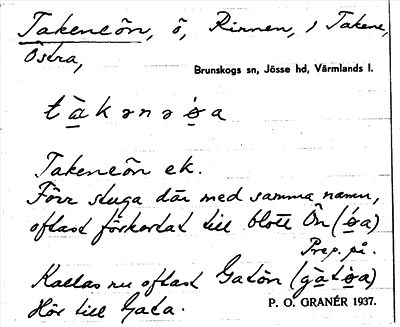 Takeneön, ö, Rinnen, i Takene,
Östra,
Brunskogs sn, Jösse hd, Värmlands l.
tàkənəø̀a
Takeneön ek.
Förr stuga där med samma namn,
oftast förkortat till blott Ön (ǿa)
Prep. på.
Kallas nu oftast Gatön (gàtøa)
Hör till Gata.
P. O. GRANÉR 1937.